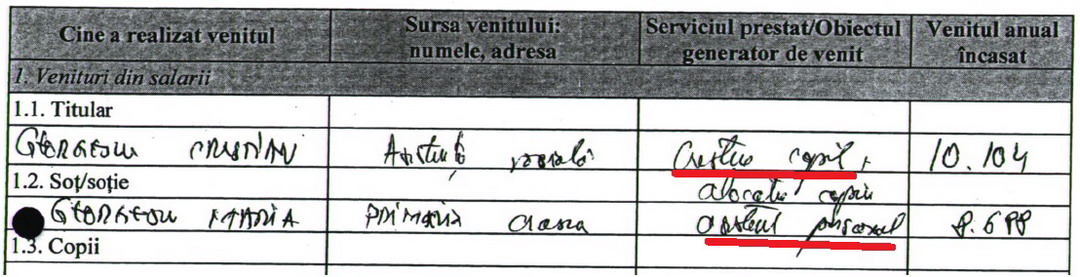 Cine a realizat venitul
Sursa venitului:
numele, adresa
Serviciul prestat/Obiectul
generator de venit
Venitul anual
încasat
1. Venituri din salarii
1.1. Titular
Georgescu Cristian Asistență socială Creștere copil, 10.104
1.2. Soț/soție
alocație copii
Georgescu Maria Primăria asistent personal
1.3. Copii